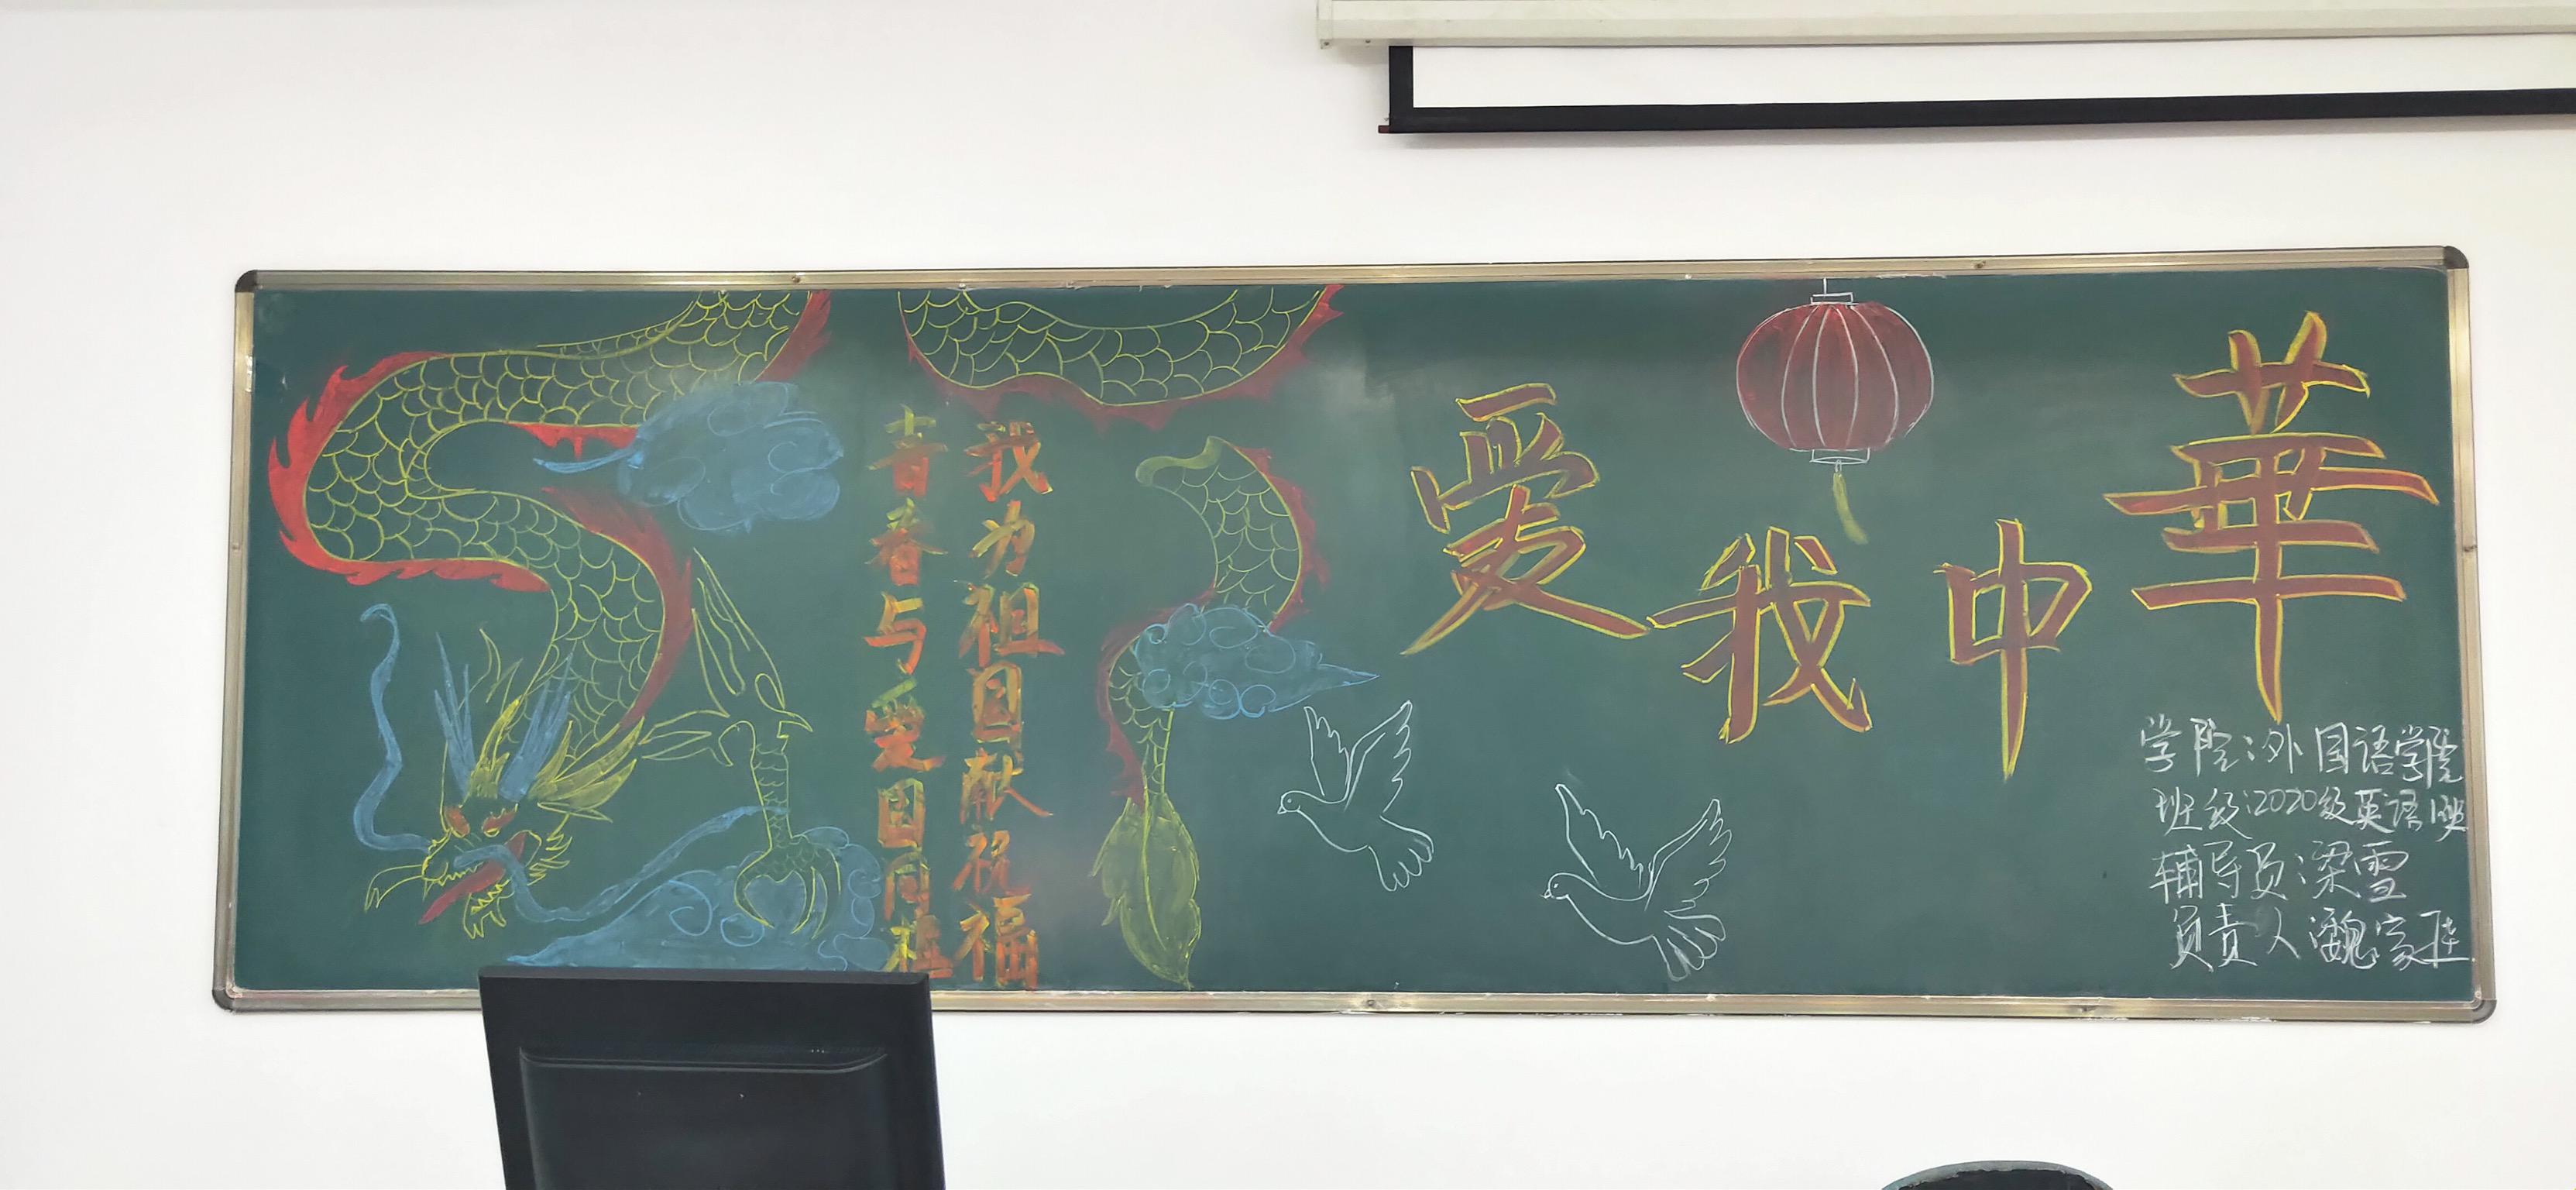 爱我中華
我为祖国献祝福
青春与爱国同在
学院:外国语学院
班级:2020级英语1班
辅导员:梁雪
负责人